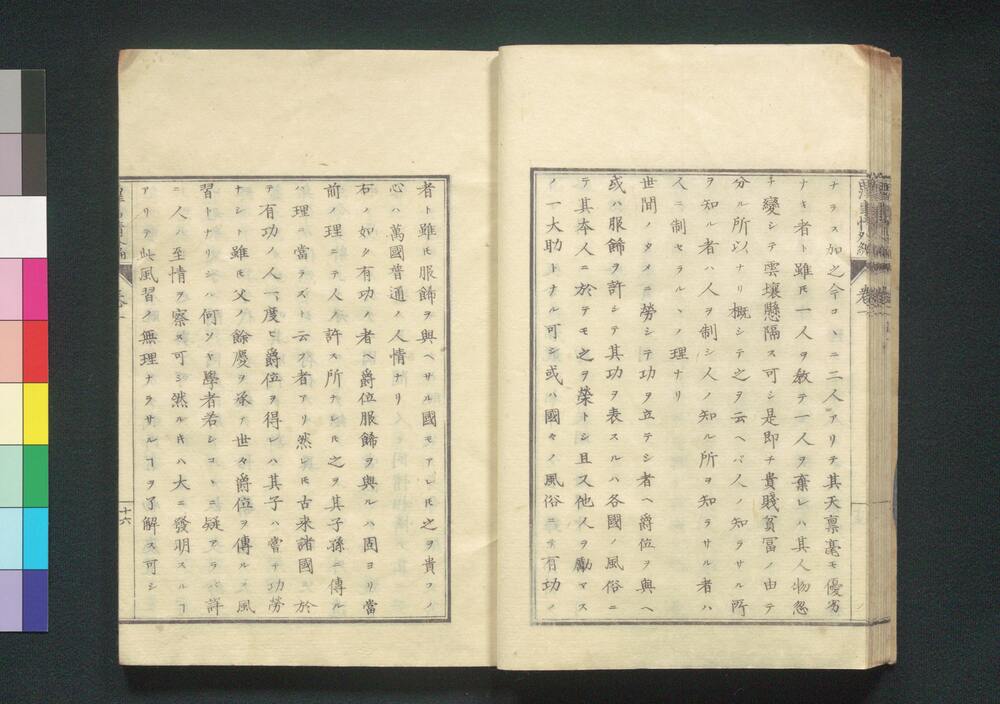 ナラス加之今コヽニ二人アリテ其天稟毫モ優劣
ナキ者ト雖𪜈一人ヲ教テ一人ヲ棄レハ其人物忽
チ變シテ雲壤懸隔ス可シ是即チ貴賤貧冨ノ由テ
分ル所以ナリ概シテ之ヲ云ヘバ人ノ知ラサル所
ヲ知ル者ハ人ヲ制シ人ノ知ル所ヲ知ラサル者ハ
人ニ制セラルヽノ理ナリ
世間ノタメニ勞シテ功ヲ立テシ者ヘ爵位ヲ與ヘ
或ハ服飾ヲ許シテ其功ヲ表スルハ各國ノ風俗ニ
テ其本人ニ於テモ之ヲ榮トシ且又他人ヲ勵マス
ノ一大助トナル可シ或ハ國々ノ風俗ニテ有功ノ
者ト雖𪜈服飾ヲ與ヘサル國モアレ𪜈之ヲ貴フノ
心ハ萬國普通ノ人情ナリ
右ノ如ク有功ノ者ヘ爵位服飾ヲ與ルハ固ヨリ當
前ノ理ニテ人ノ許ス所ナレ𪜈之ヲ其子孫ニ傳ル
ハ理ニ當ラズト云フ者アリ然レ𪜈古来諸國ニ於
テ有功ノ人一度ヒ爵位ヲ得レハ其子ハ嘗テ功勞
ナシト雖𪜈父ノ餘慶ヲ承ケ世々爵位ヲ傳ルノ風
習トナリシハ何ソヤ學者若シコヽニ疑アラバ詳
ニ人ノ至情ヲ察ス可シ然ル𪜈ハ大ニ發明スルヿ
アリテ此風習ノ無理ナラサルヿヲ了解ス可シ
十六